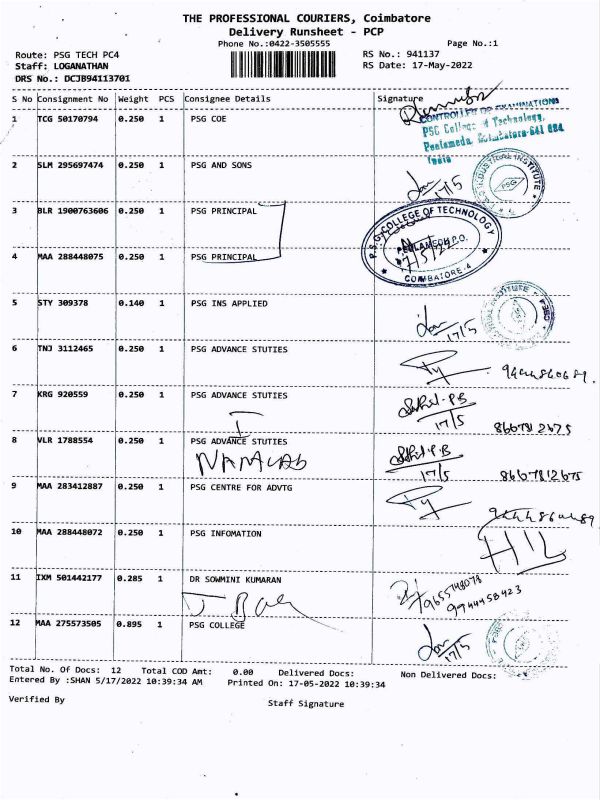 THE PROFESSIONAL COURIERS, Coimbatore
Delivery Runsheet - PCP
Phone No.:0422-3505555 Page No.:1
Route: PSG TECH PC4 RS No.: 941137
Staff: LOGANATHAN RS Date: 17-May-2022
DRS No.: DCJB94113701
S No Consignment No Weight PCS Consignee Details Signature
1 TCG 50170794 0.250 1 PSG COE
CONTROLLER OF EXAMINATIONS
PSG College of Technology,
Peelamedu, Coimbatore-641 004
India
2 SLM 295697474 0.250 1 PSG AND SONS 17/5
INDUSTRIAL INSTITUTE
PSG
3 BLR 1900763606 0.250 1 PSG PRINCIPAL
P.S.G. COLLEGE OF TECHNOLOGY
PEELAMEDU P.O.
COIMBATORE-4
4 MAA 288448075 0.250 1 PSG PRINCIPAL
5 STY 309378 0.140 1 PSG INS APPLIED 17/5
6 TNJ 3112465 0.250 1 PSG ADVANCE STUTIES
7 KRG 920559 0.250 1 PSG ADVANCE STUTIES
17/5
8 VLR 1788554 0.250 1 PSG ADVANCE STUTIES
17/5 8667812675
9 MAA 283412887 0.250 1 PSG CENTRE FOR ADVTG
10 MAA 288448072 0.250 1 PSG INFOMATION
11 IXM 501442177 0.285 1 DR SOWMINI KUMARAN
9655748078
9944458423
12 MAA 275573505 0.895 1 PSG COLLEGE 17/5
Total No. Of Docs: 12 Total COD Amt: 0.00 Delivered Docs: Non Delivered Docs:
Entered By :SHAN 5/17/2022 10:39:34 AM Printed On: 17-05-2022 10:39:34
Verified By Staff Signature